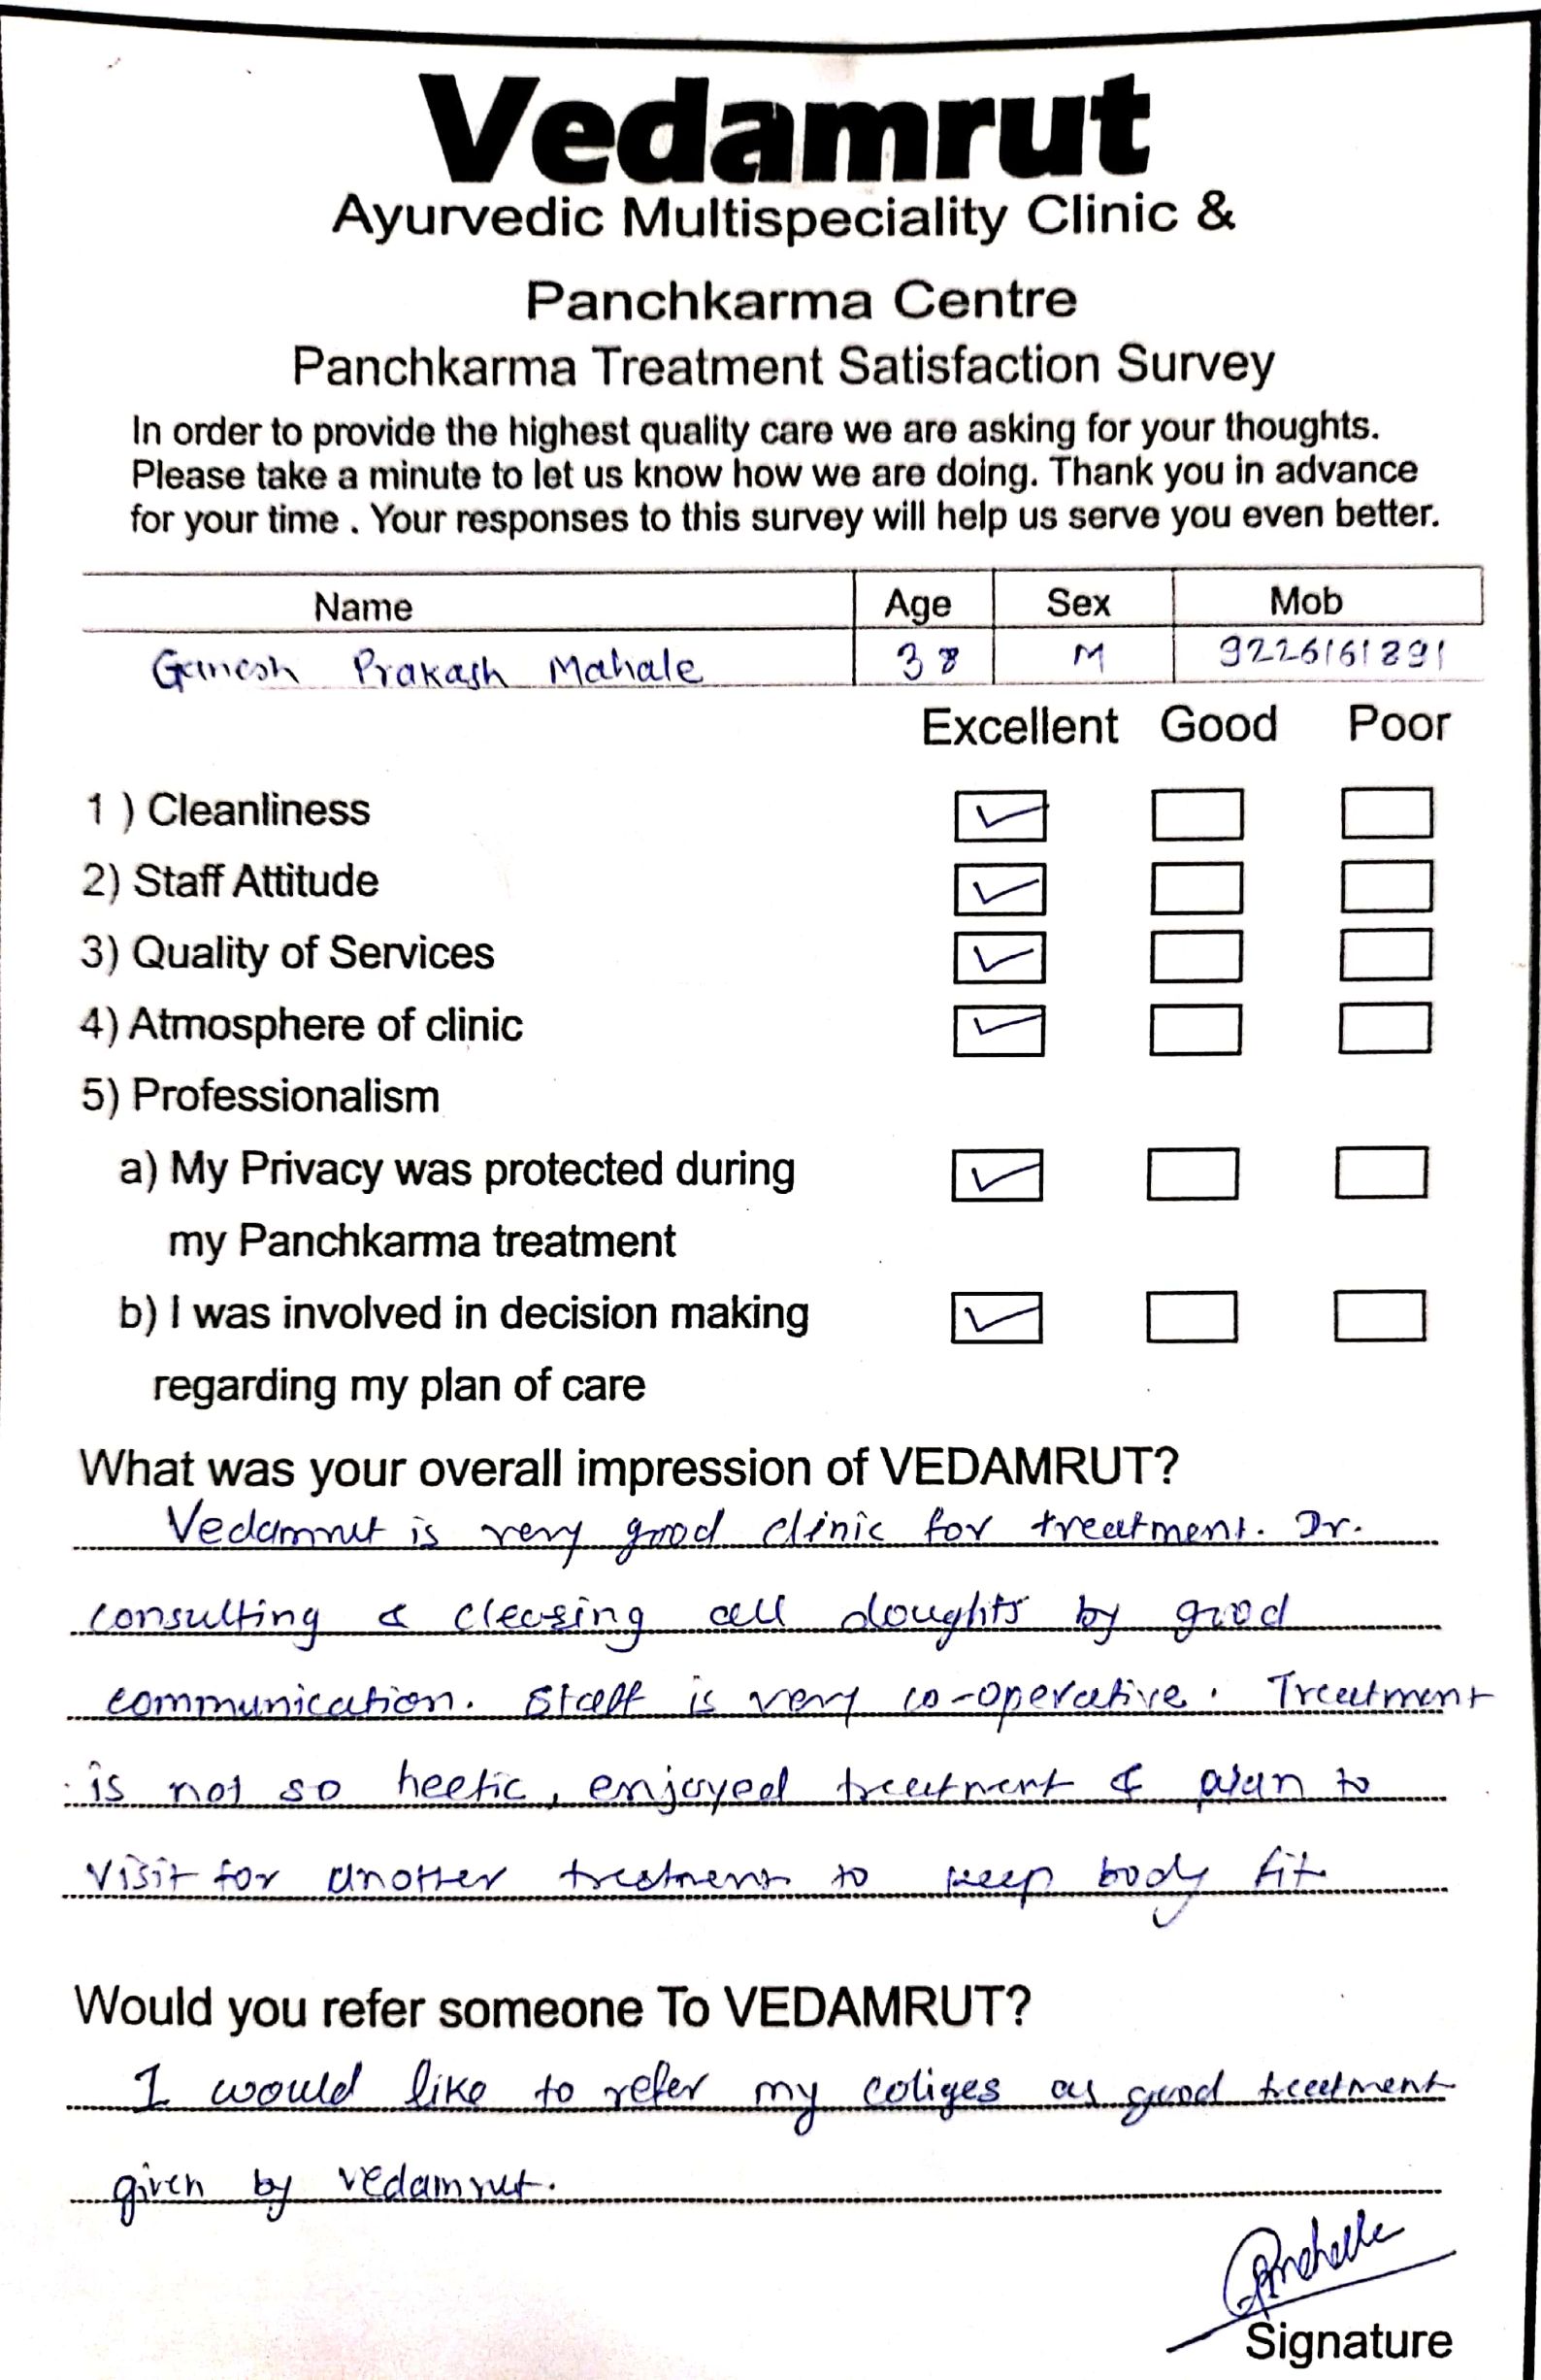 Vedamrut
Ayurvedic Multispeciality Clinic &
Panchkarma Centre
Panchkarma Treatment Satisfaction Survey
In order to provide the highest quality care we are asking for your thoughts.
Please take a minute to let us know how we are doing. Thank you in advance
for your time . Your responses to this survey will help us serve you even better.
Name Age Sex Mob
Ganesh Prakash Mahale 38 M 9226161891
Excellent Good Poor
1 ) Cleanliness
2) Staff Attitude
3) Quality of Services
4) Atmosphere of clinic
5) Professionalism
a) My Privacy was protected during
my Panchkarma treatment
b) I was involved in decision making
regarding my plan of care
What was your overall impression of VEDAMRUT?
Vedamrut is very good clinic for treatment. Dr.
consulting & cleasing all doughts by good
communication. Staff is very co-operative. Treatment
is not so heetic, enjoyed treatment & plan to
visit for another treatment to keep body fit
Would you refer someone To VEDAMRUT?
I would like to refer my coliges as good treatment
given by vedamrut.
Signature